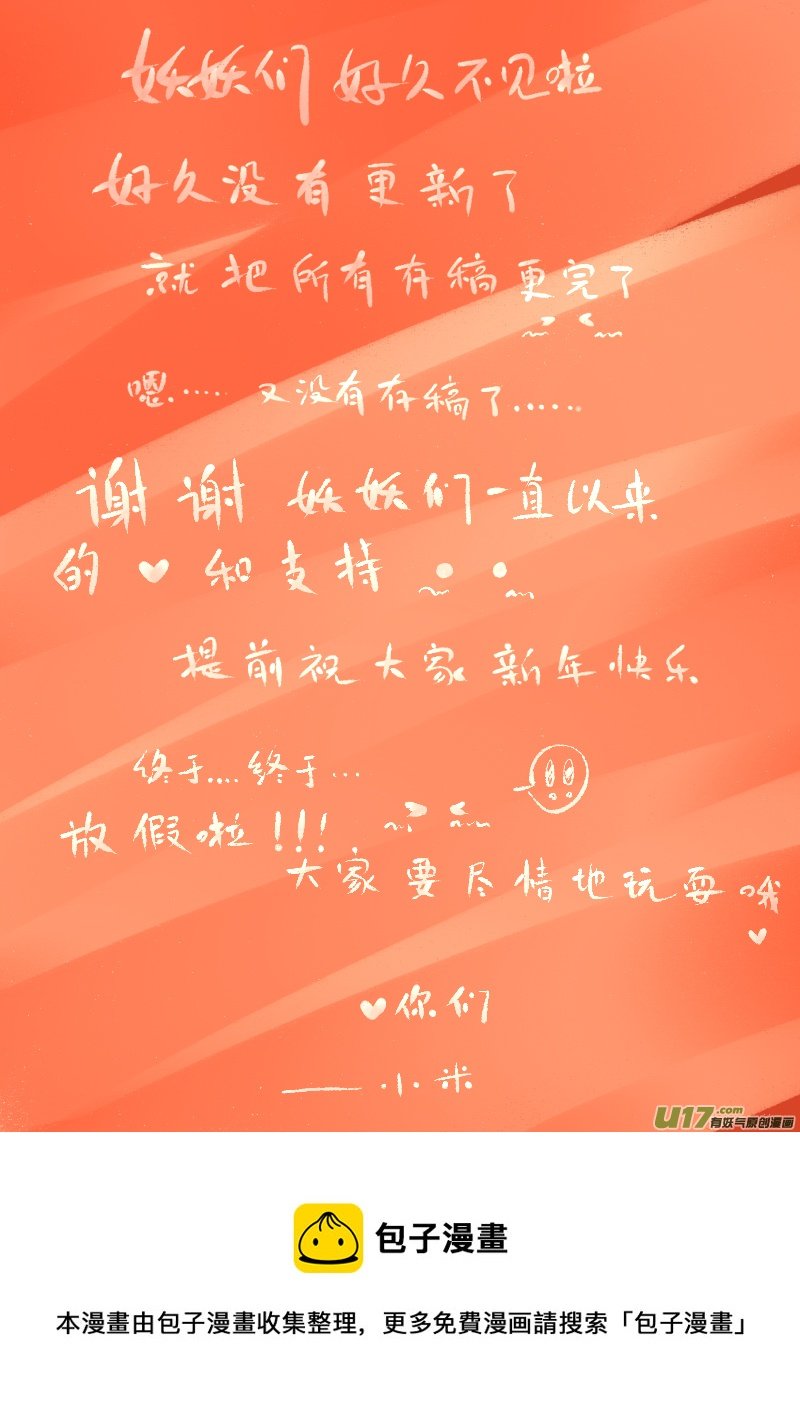 妖妖们好久不见啦
好久没有更新了
就把所有存稿更完了
嗯……又没有存稿了……
谢谢妖妖们一直以来
的♥和支持
提前祝大家新年快乐
终于....终于...
放假啦!!!
大家要尽情地玩耍哦
♥
♥你们
——小米
U17.com
有妖气原创漫画
包子漫畫
本漫畫由包子漫畫收集整理，更多免費漫画請搜索「包子漫畫」